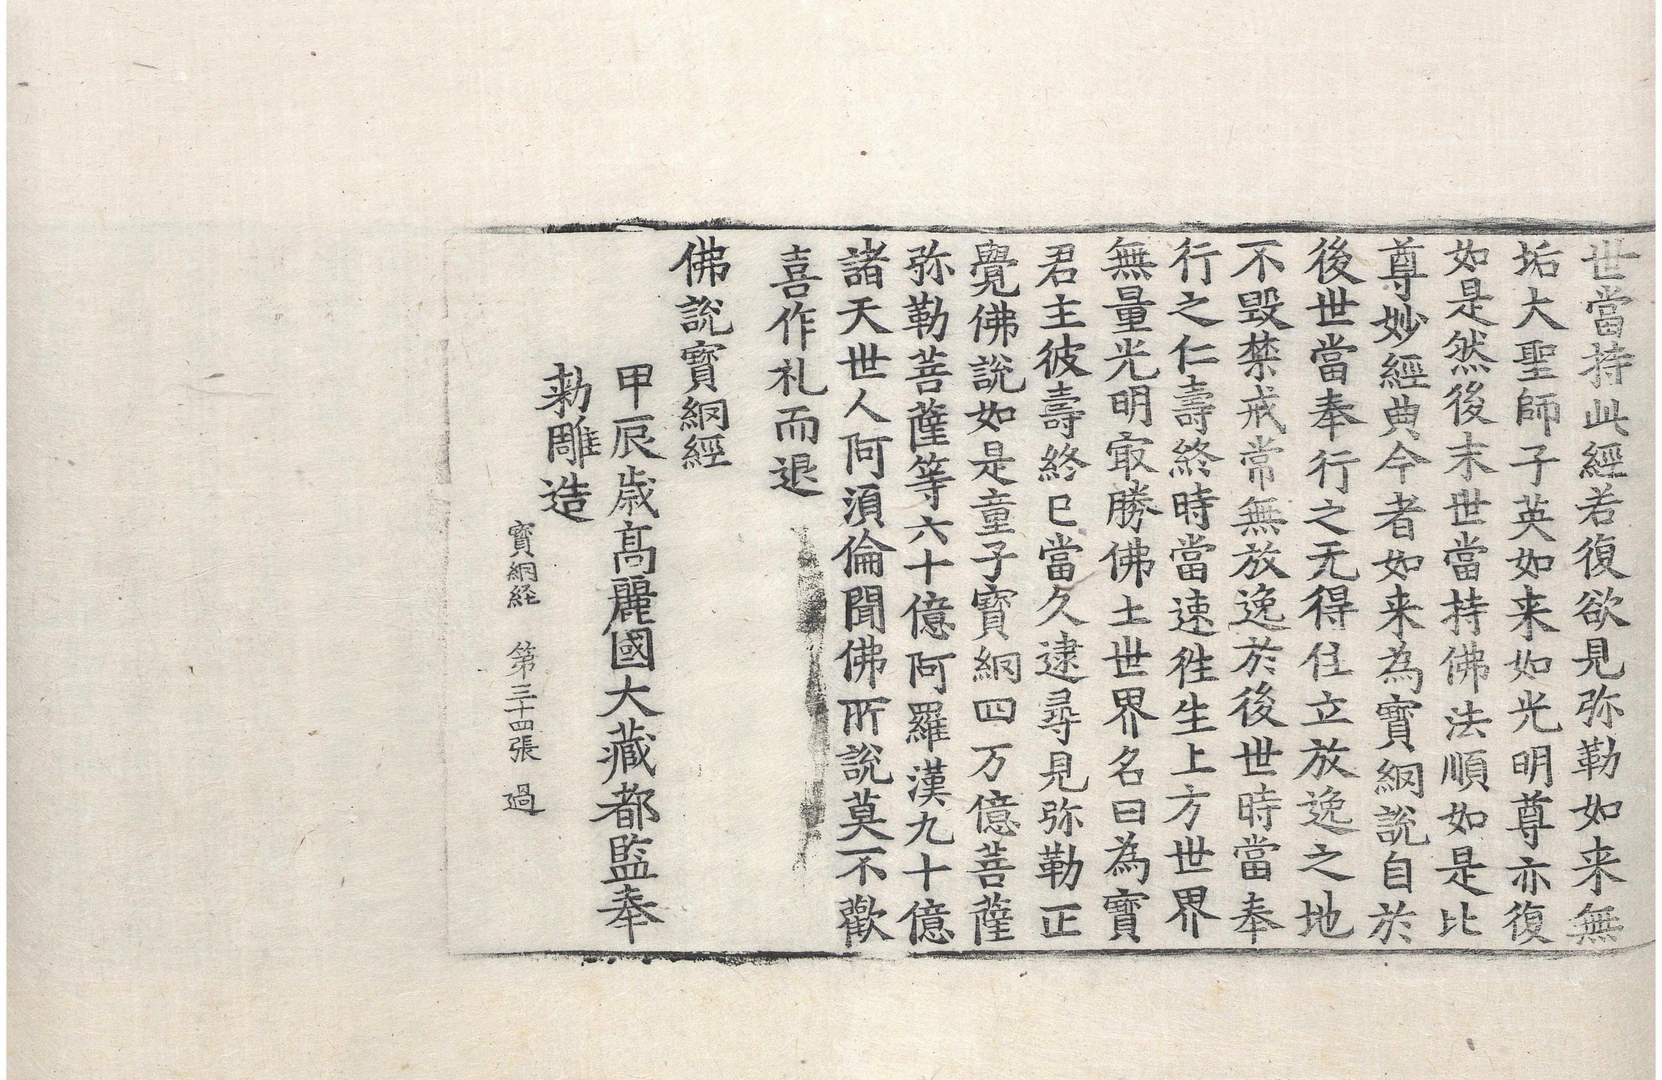 世當持此經若復欲見弥勒如来無
垢大聖師子英如来如光明尊亦復
如是然後末世當持佛法順如是比
尊妙經典今者如来為寶網說自於
後世當奉行之无得住立放逸之地
不毀禁戒常無放逸於後世時當奉
行之仁壽終時當速徃生上方世界
無量光明冣勝佛土世界名曰為寶
君主彼壽終已當久逮尋見弥勒正
覺佛說如是童子寶網四万億菩薩
弥勒菩薩等六十億阿羅漢九十億
諸天世人阿須倫聞佛所說莫不歡
喜作礼而退
佛說寶網經
甲辰歲髙麗國大藏都監奉
勑雕造
寶網経 第三十四張 過